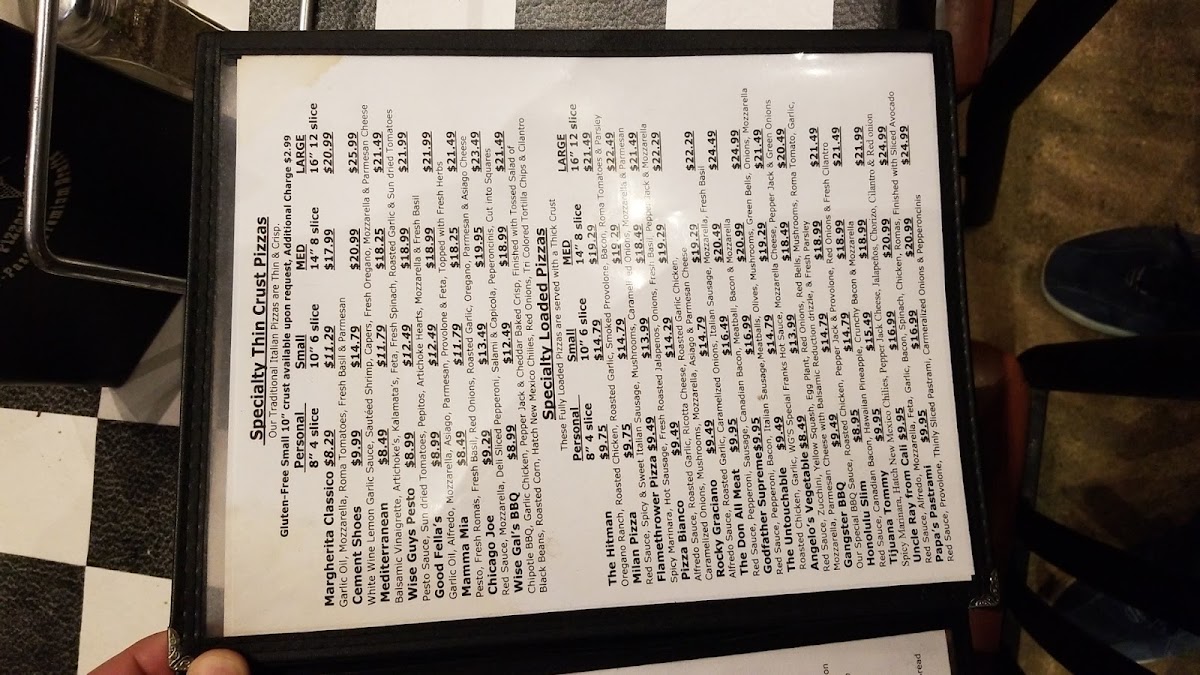 Specialty Thin Crust Pizzas
Our Traditional Italian Pizzas are Thin & Crisp.
Gluten-Free Small 10" crust available upon request, Additional Charge $2.99
Personal Small MED LARGE
8" 4 slice 10" 6 slice 14" 8 slice 16" 12 slice
Margherita Classico $8.29 $11.29 $17.99 $20.99
Garlic Oil, Mozzarella, Roma Tomatoes, Fresh Basil & Parmesan
Cement Shoes $9.99 $14.79 $20.99 $25.99
White Wine Lemon Garlic Sauce, Sautéed Shrimp, Capers, Fresh Oregano, Mozzarella & Parmesan Cheese
Mediterranean $8.49 $11.79 $18.25 $21.49
Balsamic Vinaigrette, Artichoke's, Kalamata's, Feta, Fresh Spinach, Roasted Garlic & Sun dried Tomatoes
Wise Guys Pesto $8.99 $12.49 $18.99 $21.99
Pesto Sauce, Sun dried Tomatoes, Pepitos, Artichoke Hearts, Mozzarella & Fresh Basil
Good Fella's $8.99 $12.49 $18.99 $21.99
Garlic Oil, Alfredo, Mozzarella, Asiago, Parmesan, Provolone & Feta, Topped with Fresh Herbs
Mamma Mia $8.49 $11.79 $18.25 $21.49
Pesto, Fresh Romas, Fresh Basil, Red Onions, Roasted Garlic, Oregano, Parmesan & Asiago Cheese
Chicago Joe $9.29 $13.49 $19.95 $23.49
Red Sauce, Mozzarella, Deli Sliced Pepperoni, Salami & Capicola, Peperoncinis, Cut into Squares
Wise Gal's BBQ $8.99 $12.49 $18.99 $21.49
Chipotle BBQ, Garlic Chicken, Pepper Jack & Cheddar Baked Crisp, Finished with Tossed Salad of
Black Beans, Roasted Corn, Hatch New Mexico Chilies, Red Onions, Tri Colored Tortilla Chips & Cilantro
Specialty Loaded Pizzas
These Fully Loaded Pizzas are served with a Thick Crust
Personal Small MED LARGE
8" 4 slice 10" 6 slice 14" 8 slice 16" 12 slice
The Hitman $9.75 $14.79 $19.29 $21.49
Oregano Ranch, Roasted Chicken, Roasted Garlic, Smoked Provolone, Bacon, Roma Tomatoes & Parsley
Milan Pizza $9.75 $14.79 $19.29 $22.49
Red Sauce, Spicy & Sweet Italian Sausage, Mushrooms, Caramelized Onions, Mozzarella & Parmesan
Flamethrower Pizza $9.49 $13.99 $18.49 $21.49
Spicy Marinara, Hot Sausage, Fresh Roasted Jalapenos, Onions, Fresh Basil, Pepper Jack & Mozzarella
Pizza Bianco $9.49 $14.29 $19.29 $22.29
Alfredo Sauce, Roasted Garlic, Ricotta Cheese, Roasted Garlic Chicken,
Caramelized Onions, Mushrooms, Mozzarella, Asiago & Parmesan Cheese
Rocky Graciano $9.49 $14.79 $19.29 $22.29
Alfredo Sauce, Roasted Garlic, Caramelized Onions, Italian Sausage, Mozzarella, Fresh Basil
The Don All Meat $9.95 $16.49 $20.49 $24.49
Red Sauce, Pepperoni, Sausage, Canadian Bacon, Meatball, Bacon & Mozzarella
Godfather Supreme $9.95 $16.99 $20.99 $24.99
Red Sauce, Pepperoni, Bacon, Italian Sausage, Meatballs, Olives, Mushrooms, Green Bells, Onions, Mozzarella
The Untouchable $9.49 $14.79 $19.29 $21.49
Roasted Chicken, Garlic, WG'S Special Franks Hot Sauce, Mozzarella Cheese, Pepper Jack & Green Onions
Angelo's Vegetable $8.49 $13.99 $18.49 $20.49
Red Sauce, Zucchini, Yellow Squash, Egg Plant, Red Onions, Red Bells, Mushrooms, Roma Tomato, Garlic,
Mozzarella, Parmesan Cheese with Balsamic Reduction drizzle, & Fresh Parsley
Gangster BBQ $9.49 $14.79 $18.99 $21.49
Our Special BBQ Sauce, Roasted Chicken, Pepper Jack & Provolone, Red Onions & Fresh Cilantro
Honolulu Slim $8.95 $14.79 $18.99 $21.49
Red Sauce, Canadian Bacon, Hawaiian Pineapple, Crunchy Bacon & Mozzarella
Tijuana Tommy $9.95 $15.49 $18.99 $21.99
Spicy Marinara, Hatch New Mexico Chilies, Pepper Jack Cheese, Jalapeños, Chorizo, Cilantro & Red onion
Uncle Ray from Cali $9.95 $16.99 $20.99 $24.99
Red Sauce, Alfredo, Mozzarella, Feta, Garlic, Bacon, Spinach, Chicken, Romas, Finished with Sliced Avocado
Papa's Pastrami $9.95 $16.99 $20.99 $24.99
Red Sauce, Provolone, Thinly Sliced Pastrami, Carmeralized Onions & Pepperoncinis